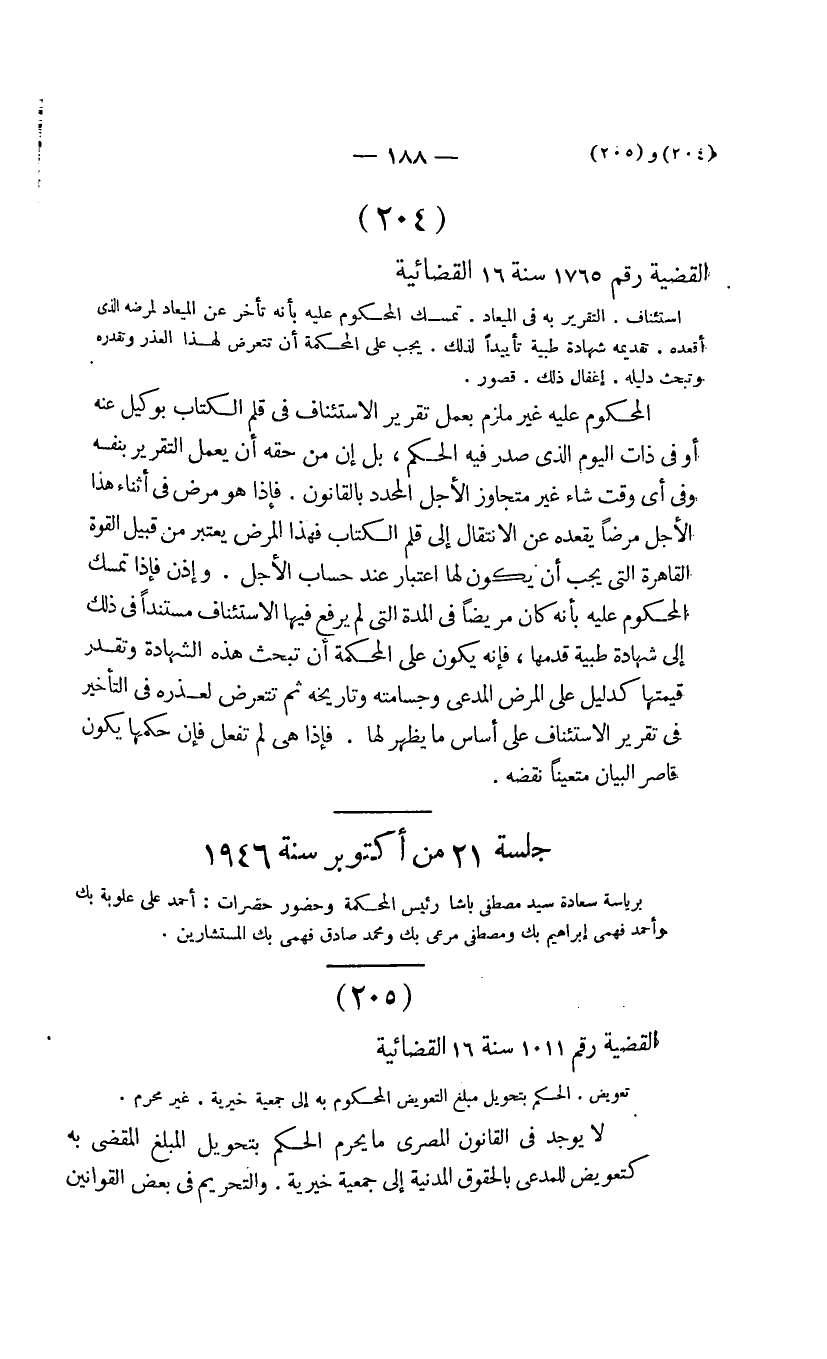 (٢٠٤) و (٢٠٥)
— ١٨٨ —
(٢٠٤)
القضية رقم ١٧٦٥ سنة ١٦ القضائية
استئناف . التقرير به فى الميعاد . تمسك المحكوم عليه بأنه تأخر عن الميعاد لمرضه الذى
أقعده . تقديمه شهادة طبية تأييداً لذلك . يجب على المحكمة أن تتعرض لهذا العذر وتقدره
وتبحث دليله . إغفال ذلك . قصور .
المحكوم عليه غير ملزم بعمل تقرير الاستئناف فى قلم الكتاب بوكيل عنه
أو فى ذات اليوم الذى صدر فيه الحكم ، بل إن من حقه أن يعمل التقرير بنفسه
وفى أى وقت شاء غير متجاوز الأجل المحدد بالقانون . فإذا هو مرض فى أثناء هذا
الأجل مرضاً يقعده عن الانتقال إلى قلم الكتاب فهذا المرض يعتبر من قبيل القوة
القاهرة التى يجب أن يكون لها اعتبار عند حساب الأجل . وإذن فإذا تمسك
المحكوم عليه بأنه كان مريضاً فى المدة التى لم يرفع فيها الاستئناف مستنداً فى ذلك
إلى شهادة طبية قدمها ، فإنه يكون على المحكمة أن تبحث هذه الشهادة وتقدر
قيمتها كدليل على المرض المدعى وجسامته وتاريخه ثم تتعرض لعذره فى التأخير
فى تقرير الاستئناف على أساس ما يظهر لها . فإذا هى لم تفعل فإن حكمها يكون
قاصر البيان متعيناً نقضه .
جلسة ٢١ من أكتوبر سنة ١٩٤٦
برياسة سعادة سيد مصطفى باشا رئيس المحكمة وحضور حضرات : أحمد على علوبة بك
وأحمد فهمى إبراهيم بك ومصطفى مرعى بك ومحمد صادق فهمى بك المستشارين .
(٢٠٥)
القضية رقم ١٠١١ سنة ١٦ القضائية
تعويض . الحكم بتحويل مبلغ التعويض المحكوم به إلى جمعية خيرية . غير محرم .
لا يوجد فى القانون المصرى ما يحرم الحكم بتحويل المبلغ المقضى به
كتعويض للمدعى بالحقوق المدنية إلى جمعية خيرية . والتحريم فى بعض القوانين